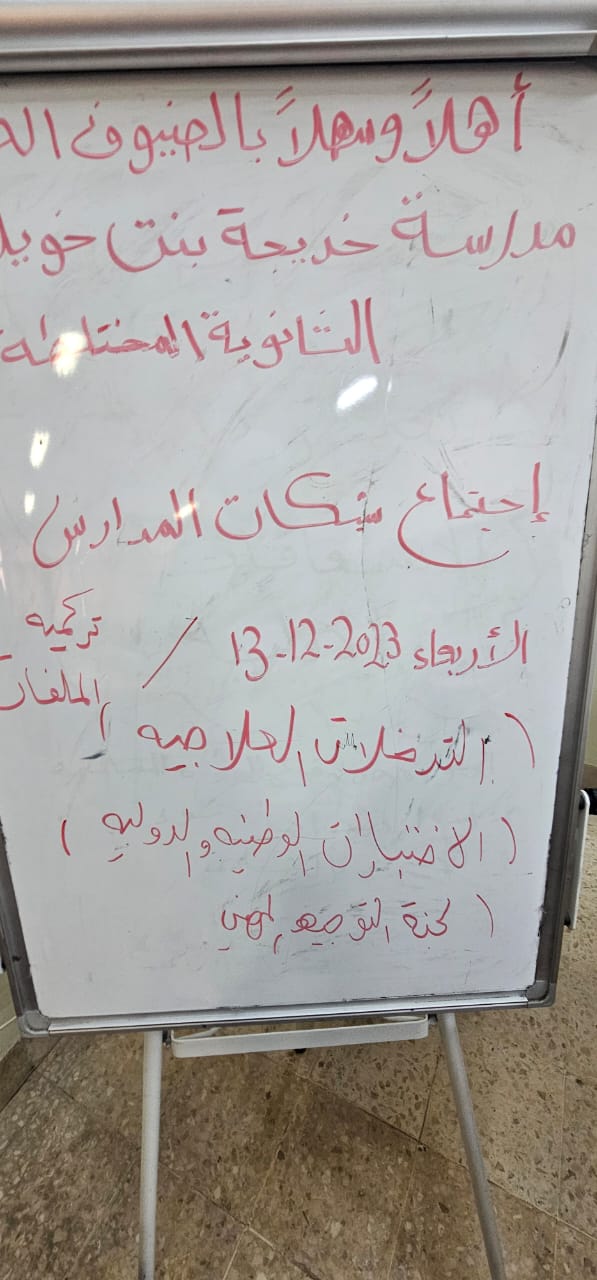 أهلاً وسهلاً بالضيوف الـ
مدرسة خديجة بنت خويلـ
الثانوية المختلطة
إجتماع شبكات المدارس
الأربعاء 2023-12-13 /
تركمية
الملفات
( التدخلات العلاجيه )
( الاختبارات الوطنيه والدوليه )
( لجنة التوجيه المهني